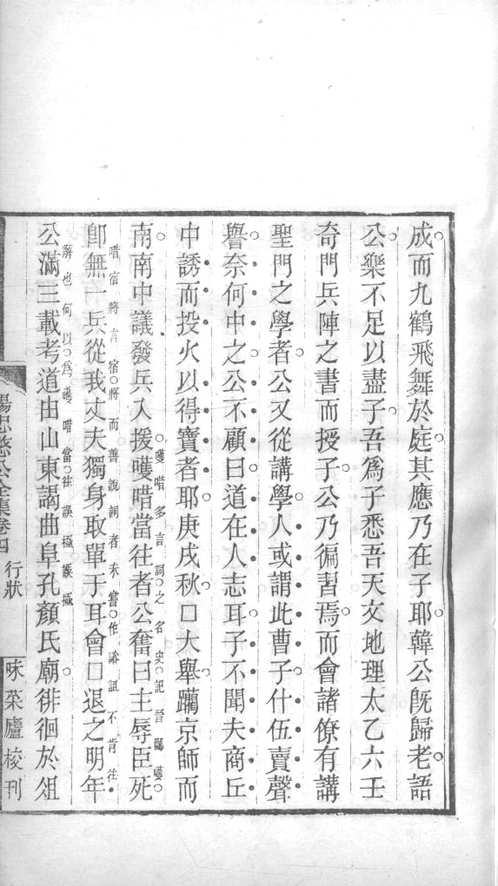 成而九鶴飛舞於庭其應乃在子耶韓公旣歸老語
公樂不足以盡子吾爲子悉吾天文地理太乙六壬
奇門兵陣之書而授子公乃徧習焉而會諸僚有講
聖門之學者公又從講學人或謂此曹子什伍賣聲
譽奈何中之公不顧曰道在人志耳子不聞夫商丘
中誘而投火以得寶者耶庚戌秋囗大舉躪京師而
南南中議發兵入援嚄唶當往者公奮曰主辱臣死
嚄唶多言詞之名史記晉鄙嚄
唶宿將言宿將而善說詞者未當作諭詛不肯往
卽無一兵從我丈夫獨身取單于耳會囗退之明年
辭也何以爲嚄唶當往
公滿三載考道由山東謁曲阜孔顏氏廟徘徊於俎
楊忠愍公全集卷四 行狀 味菜廬校刊